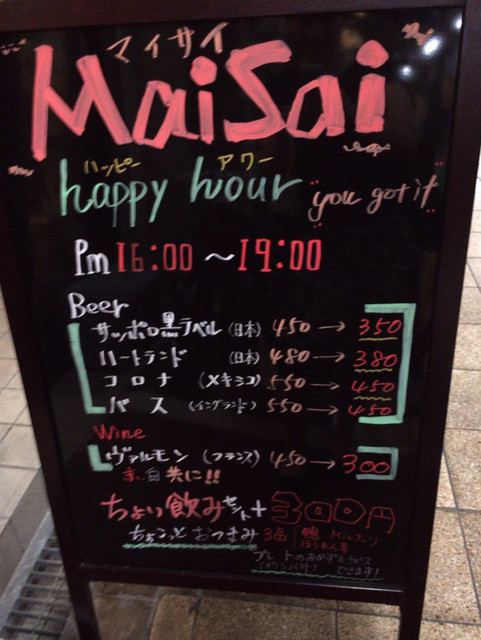 マイサイ
MaiSai
ハッピー アワー
happy hour "you got it"
Pm 16:00 ～ 19:00
Beer
サッポロ黒ラベル (日本) 450 → 350
ハートランド (日本) 480 → 380
コロナ (メキシコ) 550 → 450
バス (イングランド) 550 → 450
Wine
ヴァルモン (フランス) 450 → 300
赤、白 共に!!
ちょい飲みセット+300円
ちょこっとおつまみ 3品
鴨 Mixナッツ
ほうれん草
プレートのおかず
できます!